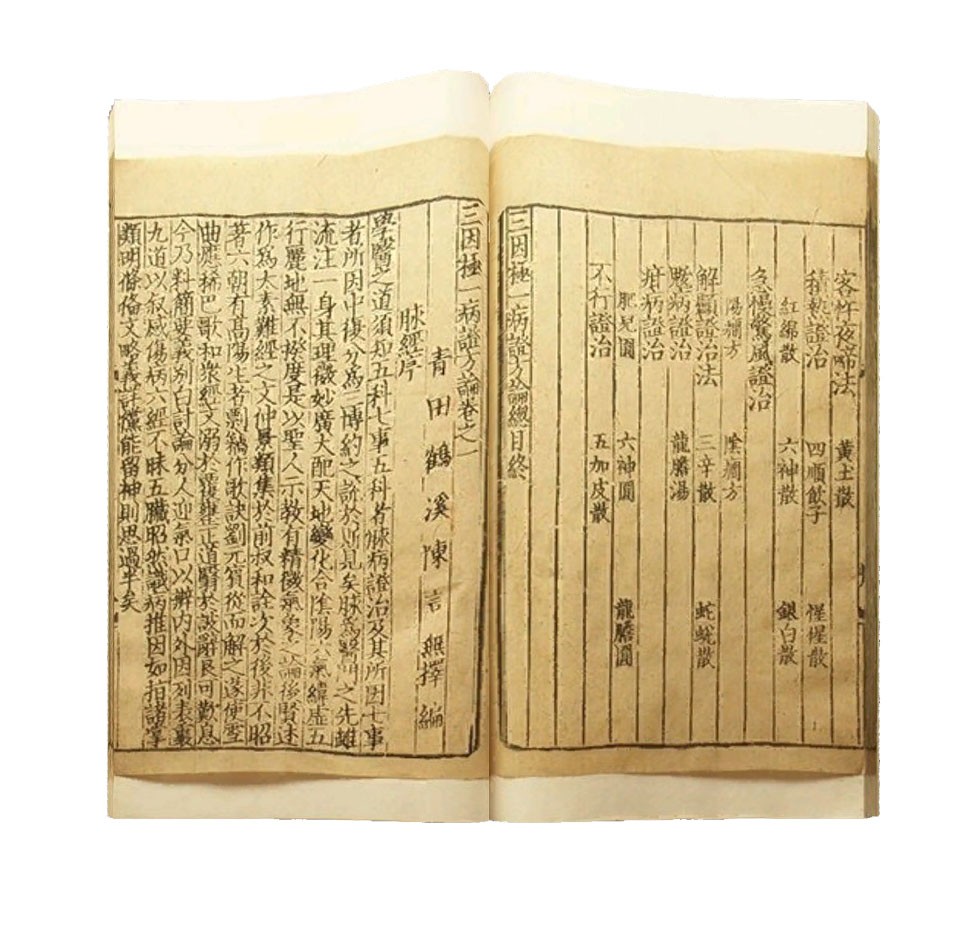 客忤夜啼法 黃土散
積熱證治 四順飲子 惺惺散
紅綿散 六神散 銀白散
急慢驚風證治
陽癎方 陰癎方
解顱證治法 三辛散 蛇蛻散
證治 龍膽湯
疳病證治
肥兒圓 六神圓 龍膽圓
不行證治 五加皮散
三因極一病證方論總目終
三因極一病證方論卷之一
青田鶴溪陳言無擇編
脉經序
學醫之道須知五科七事五科者脉病證治及其所因七事
者所因中復分爲三博約之說於斯見矣脉爲醫門之先雖
流注一身其理微妙廣大配天地變化合陰陽六氣緯虛五
行麗地無不揆度是以聖人示教有精微氣象之論後賢述
作爲太素難經之文仲景類集於前叔和詮次於後非不昭
著六朝有高陽生者剽竊作歌訣劉元賓從而解之遂使
曲應稀巴歌和衆經文溺於覆正道翳於詖辭良可歎息
今乃料簡要義別白討論分人迎氣口以辨內外因列表裏
九道以叙感傷病六經不昧五臟昭然識病推因如指諸掌
類明條備文略義詳儻能留神則思過半矣